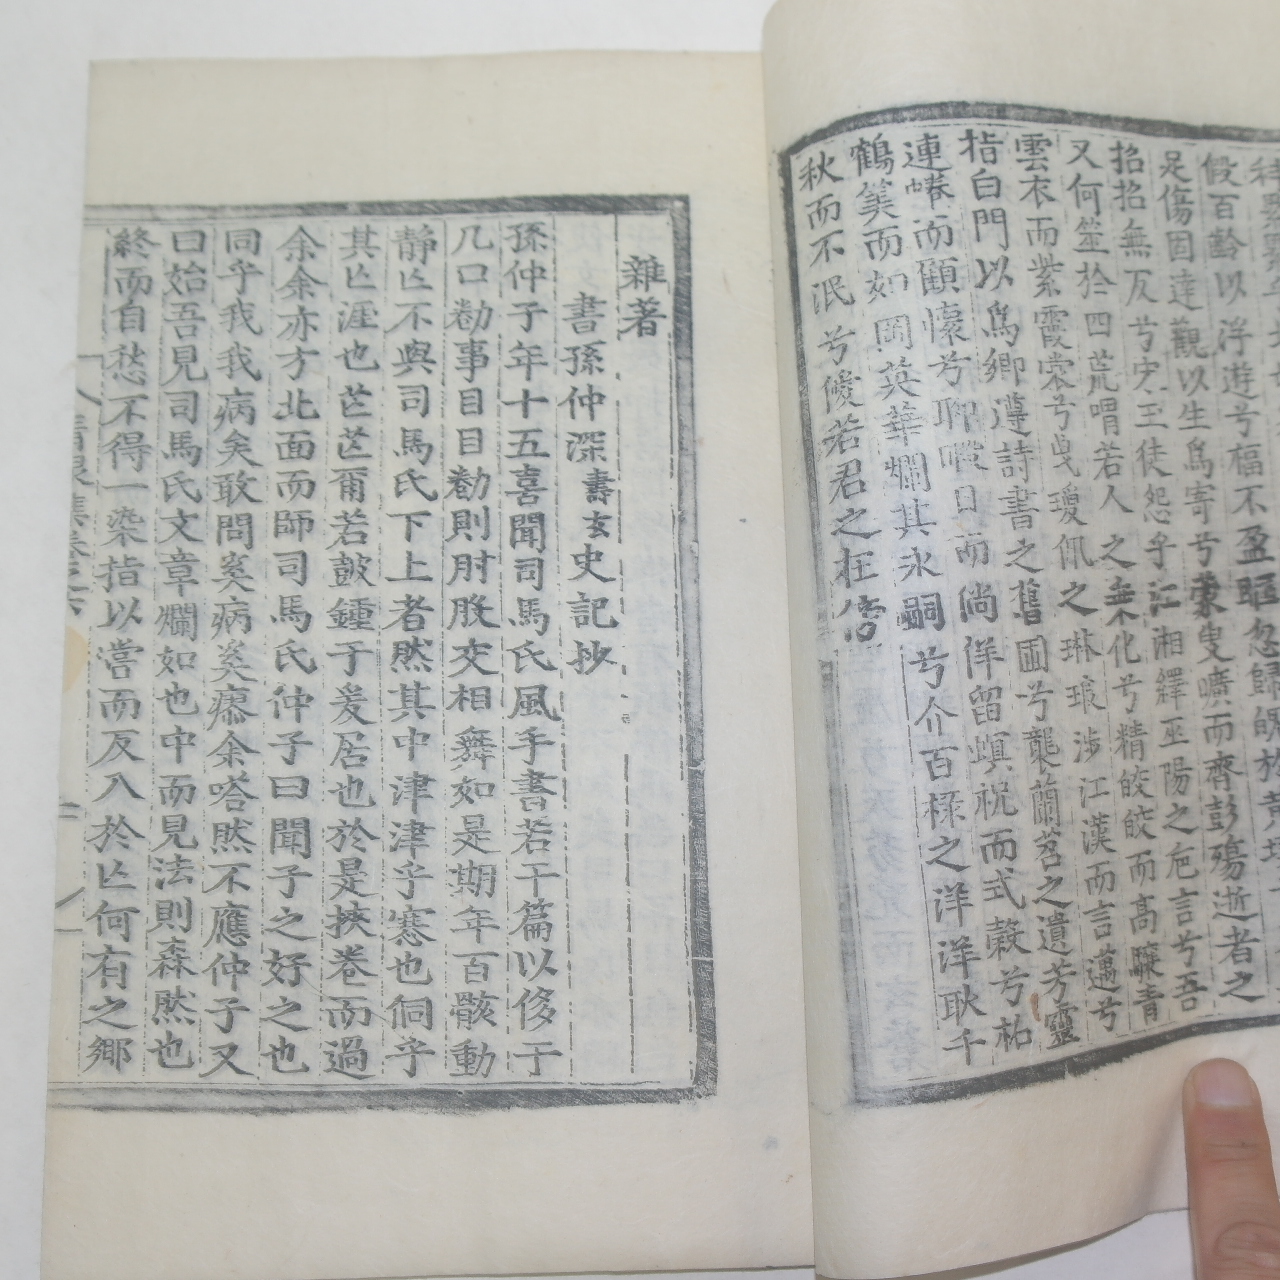 假百齡以浮遊兮福不盈眶忽歸
是傷因達觀以生爲寄兮蒙叟曠而齊彭殤逝者之
招招無反兮宋玉徒怨乎江湘繹巫陽之巵言兮吾
又何筮於四荒喟若人之無化兮精皎皎而高驤青
雲衣而紫霞裳兮曳瓊佩之琳琅涉江漢而言邁兮
指白門以爲鄉遵詩書之舊圃兮襲蘭茗之遺芳靈
連蜷而顧懷兮聊嚥日而尚佯留嗔祝而式穀兮祐
鶴筭而如岡英華爛其永嗣兮介百祿之洋洋耿千
秋而不泯兮優若君之在傍
雜著
書孫仲深壽玄史記抄
孫仲子年十五喜聞司馬氏風手書若干篇以侈于
几口勌事目目勌則肘股交相舞如是期年百骸動
靜亡不與司馬氏下上者然其中津津乎憙也侗乎
其亡涯也芒芒爾若皷鍾于爰居也於是挾卷而過
余余亦方北面而師司馬氏仲子曰聞子之好之也
同乎我我病矣敢問奚病奚瘳余嗒然不應仲子又
曰始吾見司馬氏文章爛如也中而見法則森然也
終而自愁不得一染指以嘗而反入於亡何有之鄉